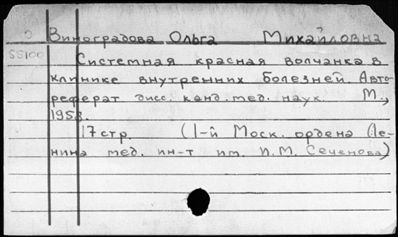 Виноградова Ольга Михайловна
Системная красная волчанка в
клинике внутренних болезней. Авто-
реферат дисс. канд. мед. наук. М.,
1958.
17 стр. (1-й Моск. ордена Ле-
нина мед. ин-т им. И.М. Сеченова)